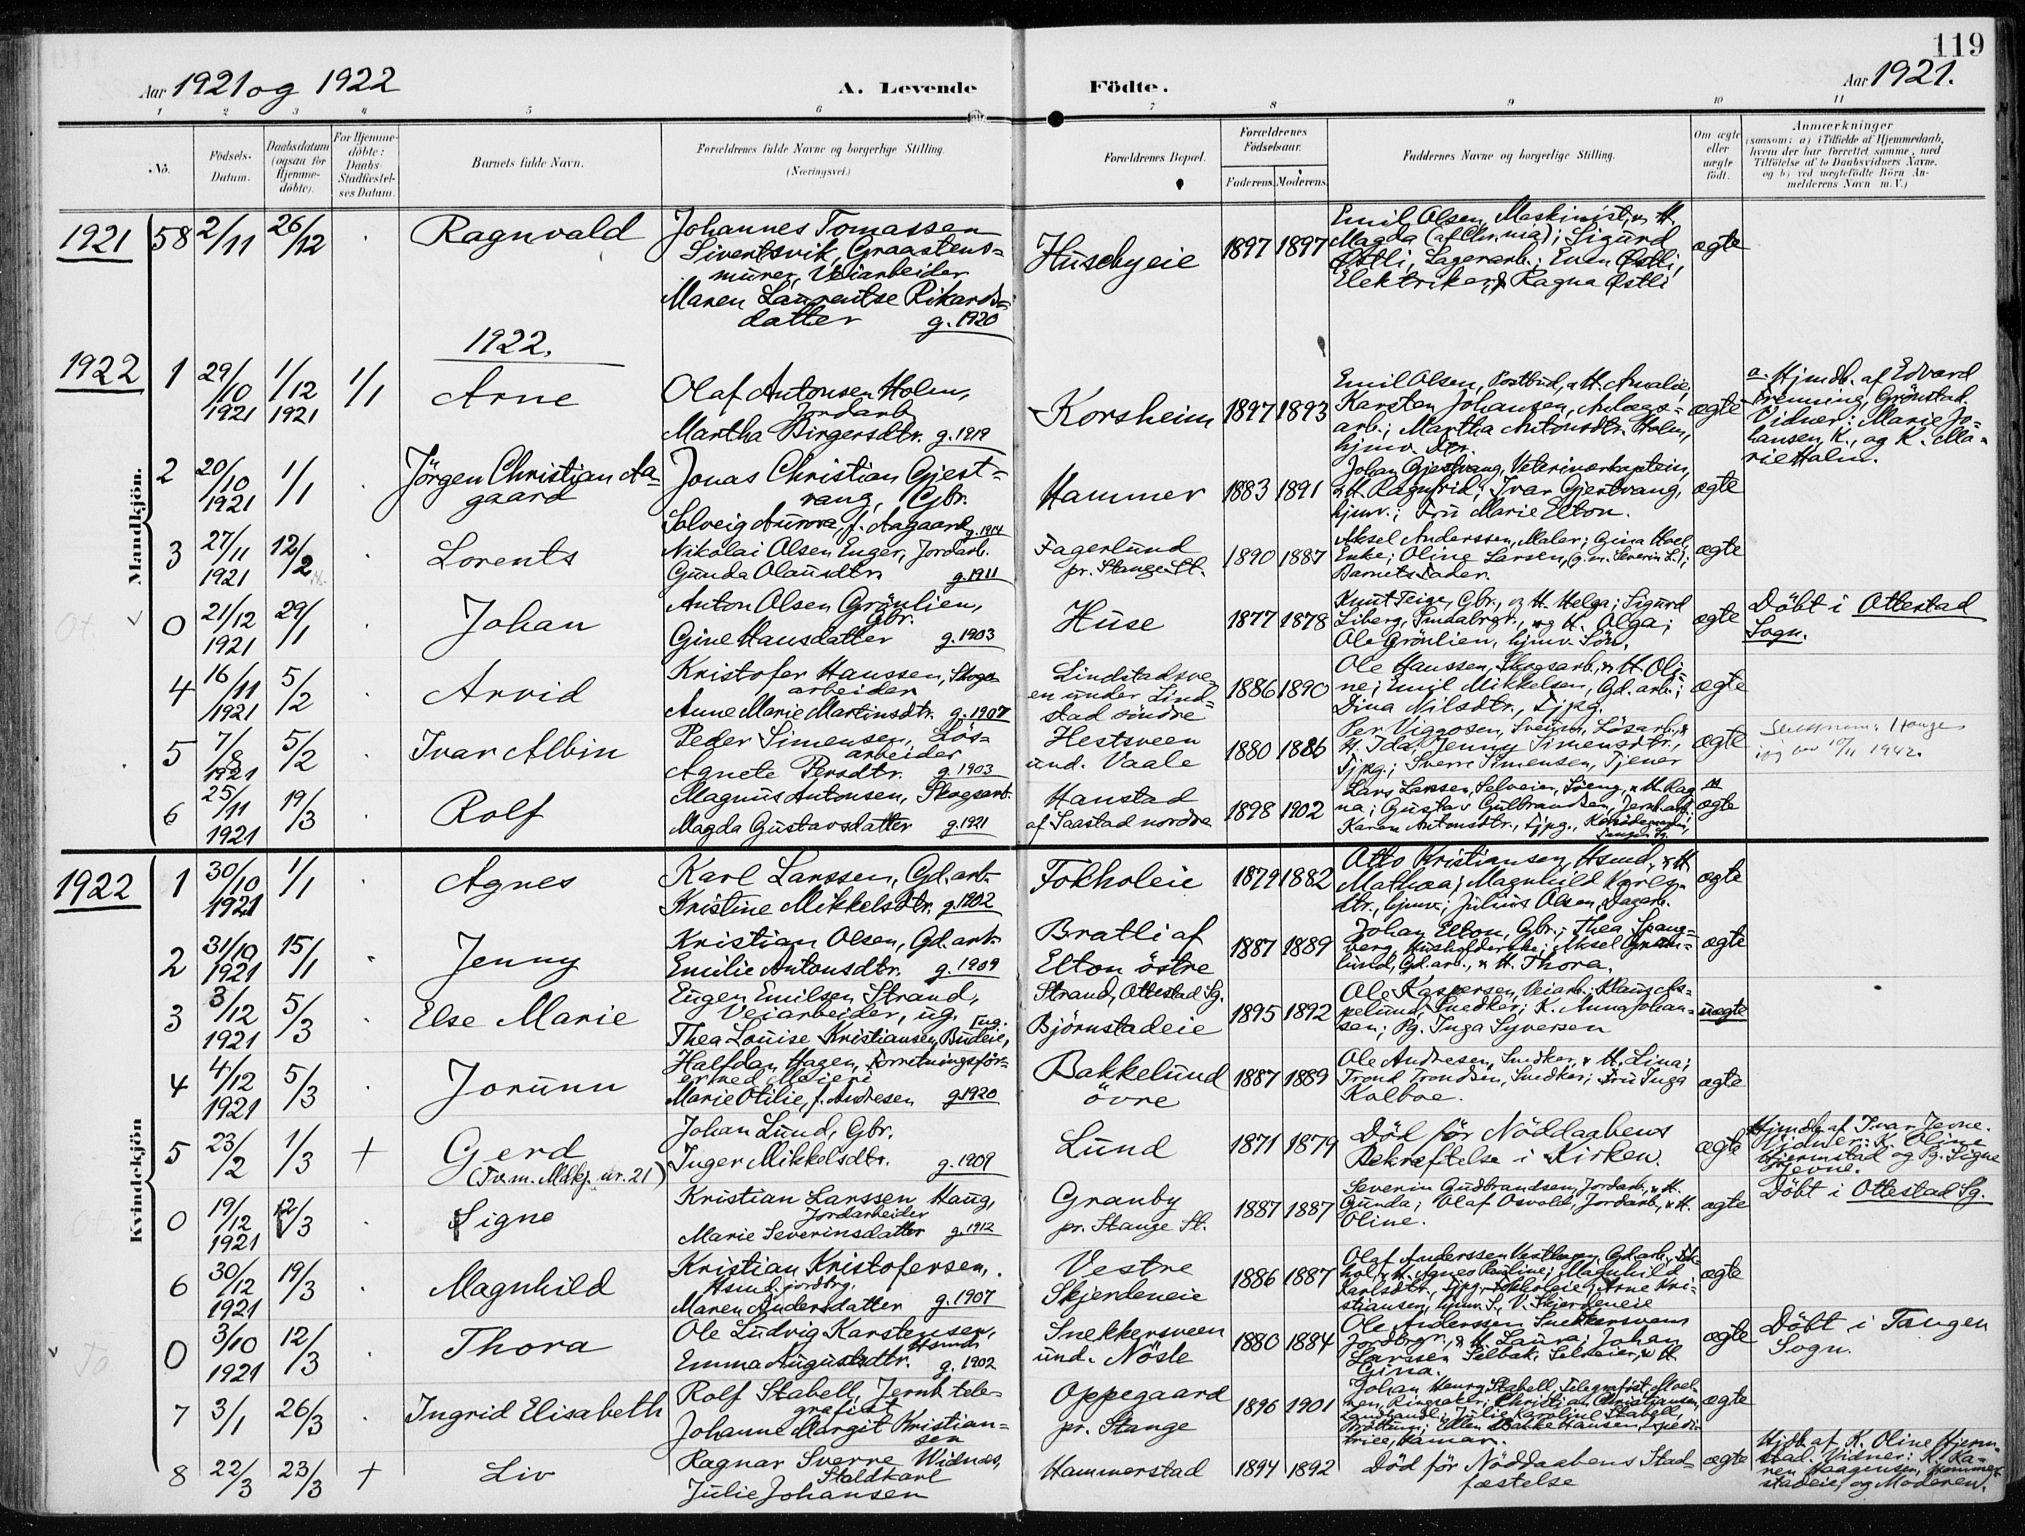 119
Aar 1921 og 1922
A. Levende
Födte.
Aar 1921.
1 2 3 4 5 6 7 8 9 10 11
No.
Födsels-
Datum.
Daabsdatum
(ogsaa for
Hjemme-
döbte).
For Hjemme-
döbte:
Daabs-
Stadfæstel-
ses Datum.
Barnets fulde Navn.
Forældrenes fulde Navne og borgerlige Stilling.
(Næringsvei.)
Forældrenes Bopæl.
Forældrenes
Födselsaar.
Faderens. Moderens.
Faddernes Navne og borgerlige Stilling.
Om ægte
eller
uægte
födt.
Anmærkninger
(saasom: a) i Tilfælde af Hjemmedaab,
hvem der har forrettet samme, med
Tilföielse af to Daabsvidners Navne.
og b) ved uægtefödte Börn An-
melderens Navn m. V.)
Mandkjön.
1921 58 2/11 26/12
Ragnvald
Johannes Tomassen
Sivertsvik, Graastens-
murer, Veiarbeider
Maren Laurentse Rikards-
datter g. 1920
Husebyeie
1897 1897
Emil Olsen, Maskinist, & H.
Magda (af Chr.nia); Sigurd
Østli, Lagerarb.; Even Østli,
Elektriker, & Ragna Østli
ægte
1922.
1922 1 29/10 1921 1/12 1921 1/1
Arne
Olaf Antonsen Holm,
Jordarb.
Martha Birgersdtr. g. 1919
Korsheim
1897 1893
Emil Olsen, Postbud, & H. Amalie,
Karsten Johansen, Anlægs-
arb.; Martha Antonsdtr. Holm,
hjmv. Dtr.
ægte
a. Hjmdb. af Edvard
Fremming, Grönstad.
Vidner: Marie Jo-
hansen, K., og K. Ma-
rie Holm.
2 20/10 1921 1/1
Jörgen Christian Aa-
gaard
Jonas Christian Gjest-
vang, Gbr.
Solveig Aurora, f. Aagaard g. 1914
Hammer
1883 1891
Johan Gjestvang, Veterinærkaptein,
& H. Ragnfrid; Ivar Gjestvang,
hjmv.; Fru Marie Elton.
ægte
3 27/11 1921 12/2
Lorents
Nikolai Olsen Enger, Jordarb.
Gunda Olausdtr. g. 1911
Fagerlund
pr. Stange St.
1890 1887
Aksel Anderssen, Maler; Gina Hoel,
Enke; Oline Larsen, (g. m. Severin L.);
Barnets Fader.
ægte
0 21/12 1921 29/1
Johan
Anton Olsen Grönlien,
Gbr.
Gine Hansdatter g. 1903
Huse
1877 1878
Knut Teige, Gbr., og H. Helga; Sigurd
Liberg, Smaabrgr., og H. Olga;
Ole Grönlien, hjmv. Sön.
ægte
Döbt i Ottestad
Sogn.
4 16/11 1921 5/2
Arvid
Kristofer Hanssen, Skogs-
arbeider
Anne Marie Martinsdtr. g. 1907
Lindstadsve-
en under Lind-
stad söndre
1886 1890
Ole Hanssen, Skogsarb., & H. Oli-
ne; Emil Mikkelsen, Gd. arb.;
Dina Nilsdtr., Tjpg.
ægte
5 7/8 1921 5/2
Ivar Albin
Peder Simensen, Lös-
arbeider
Agnete Persdtr. g. 1903
Hestsveen
und. Vaale
1880 1886
Per Viggosen, Sveum, Lösarb., &
H. Ida; Jenny Simensdtr.,
Tjpg.; Sverre Simensen, Tjener
ægte
6 25/11 1921 19/3
Rolf
Magnus Antonsen, Skogsarb.
Magda Gustavsdatter g. 1921
Hanstad
af Saastad nordre
1898 1902
Lars Larssen, Selveier, Löeng, & H. Rag
na; Gustav Gulbrandsen, Jernb. arb.
Karen Antonsdtr., Tjpg.
ægte
Kvindekjön
1922 1 30/10 1921 1/1
Agnes
Karl Larssen, Gd. arb.
Kristine Mikkelsdtr. g. 1902
Fokholeie
1879 1882
Otto Kristiansen, Hsmd., & H.
Mathea; Magnhild Karls-
dtr., hjmv.; Julius Olsen, Dagarb.
ægte
2 31/10 1921 15/1
Jenny
Kristian Olsen, Gd. arb.
Emilie Antonsdtr. g. 1909
Bratli af
Elton östre
1887 1889
Johan Elton, Gbr.; Thea Spang-
berg, Husholderske; Aksel Gran-
lund, Gd. arb., & H. Thora.
ægte
3 3/12 1921 5/3
Else Marie
Eugen Emilsen Strand,
Veiarbeider, ug.
Thea Louise Kristiansen, Budeie, [ug.
Strand, Ottestad Sg.
Björnstadeie
1895 1892
Ole Kaspersen, Veiarb.; Klaus As-
pelund, Snedker; K. Anna Johan-
sen; Pg. Inga Syversen
uægte
4 4/12 1921 5/3
Jorunn
Halfdan Hagen, Forretningsför-
er ved Meieri
Marie Otilie, f. Andresen g. 1920
Bakkelund
övre
1887 1889
Ole Andresen, Snedker, & H. Lina;
Trond Trondsen, Snedker; Fru Inga
Kolboe.
ægte
5 23/2 1/3 +
Gerd
(Tv. m. Mdkj. nr. 21)
Johan Lund, Gbr.
Inger Mikkelsdtr. g. 1909
Lund
1871 1879
Död för Nöddaabens
Bekræftelse i Kirken.
ægte
Hjmdb. af Ivar Jevne.
Vidner: K. Oline
Hjermstad og Pg. Signe
Jevne.
0 19/12 1921 12/3
Signe
Kristian Larssen Haug,
Jordarbeider
Marie Severinsdatter g. 1912
Granby
pr. Stange St.
1887 1887
Severin Gudbrandsen, Jordarb., & H.
Gunda; Olaf Osvold, Jordarb., & H.
Oline.
ægte
Döbt i Ottestad Sg.
6 30/12 1921 19/3
Magnhild
Kristian Kristofersen,
Hsmd. jordbrg.
Maren Andersdatter g. 1907
Vestre
Skjerdeneie
1886 1887
Olaf Anderssen Vesthagen, Gd. arb., Fok-
hol, & H. Agnes Pauline; Magnhild
Karlsdtr., Tjpg., Fokholeie; Arne Kri-
stiansen, hjmv. S., V. Skjerdeneie
ægte
0 3/10 1921 12/3
Thora
Ole Ludvig Karstensen,
Hsmd.
Emma Augustadtr. g. 1902
Snekkersveen
und. Nösle
1880 1884
Ole Anderssen Snekkersveen
Jordbrgr., & H. Laura; Johan
Larssen Silbak, Selveier, & H.
Gina.
ægte
Döbt i Tangen
Sogn.
7 3/1 26/3
Ingrid Elisabeth
Rolf Stabell, Jernb. tele-
grafist
Johanne Margit Kristian-
sen
Oppegaard
pr. Stange
1896 1901
Johan Henry Stabell, Moel-
ven, Ringsaker; Christian Christiansen,
Landhandl.; Julie Karoline Stabell,
Brottum; Ellen Bakke Hansen, Expedi-
trice, Hamar.
ægte
8 22/3 23/3 +
Liv
Ragnar Sverre Widnæs,
Staldkarl
Julie Johansen
Hammerstad
1894 1892
Död för Nöddaabens Stad-
fæstelse
ægte
Hjdb. af K. Oline Hjerm-
stad. Vidner: K. Ka-
ren Haagensen, Hammer-
stadeie, og Moderen.